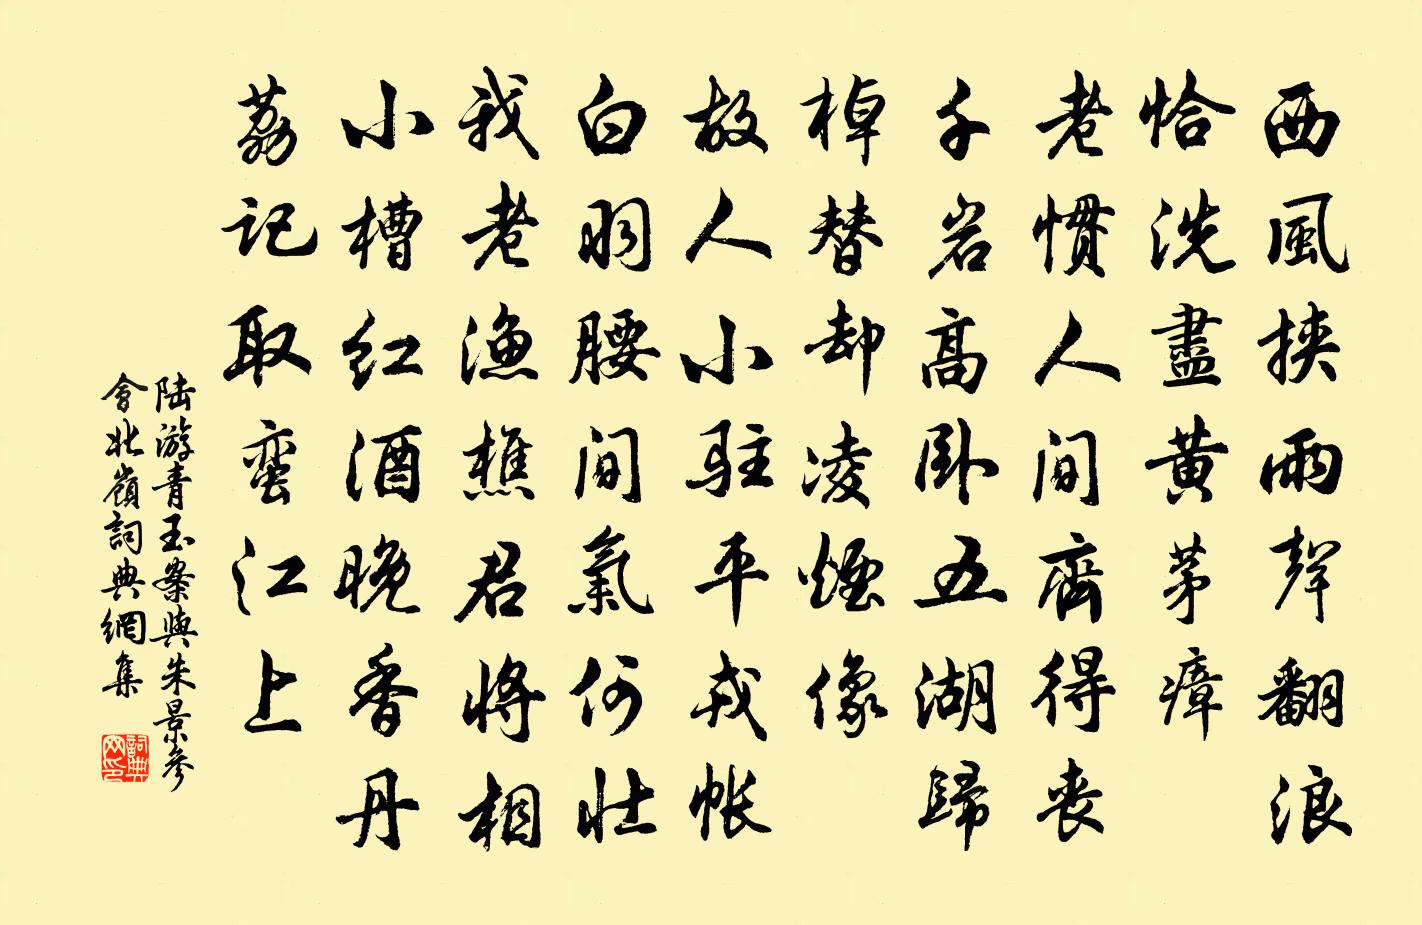 西風挾雨聲翻浪
恰洗盡黃茅瘴
老慣人間齊得喪
千岩高臥五湖歸
棹替却凌煙像
故人小駐平戎帳
白羽腰間氣何壯
我老漁樵君將相
小槽紅酒晚香丹
荔記取蠻江上
陆游青玉案與朱景參
會北嶺詞典網集
詞典
网印